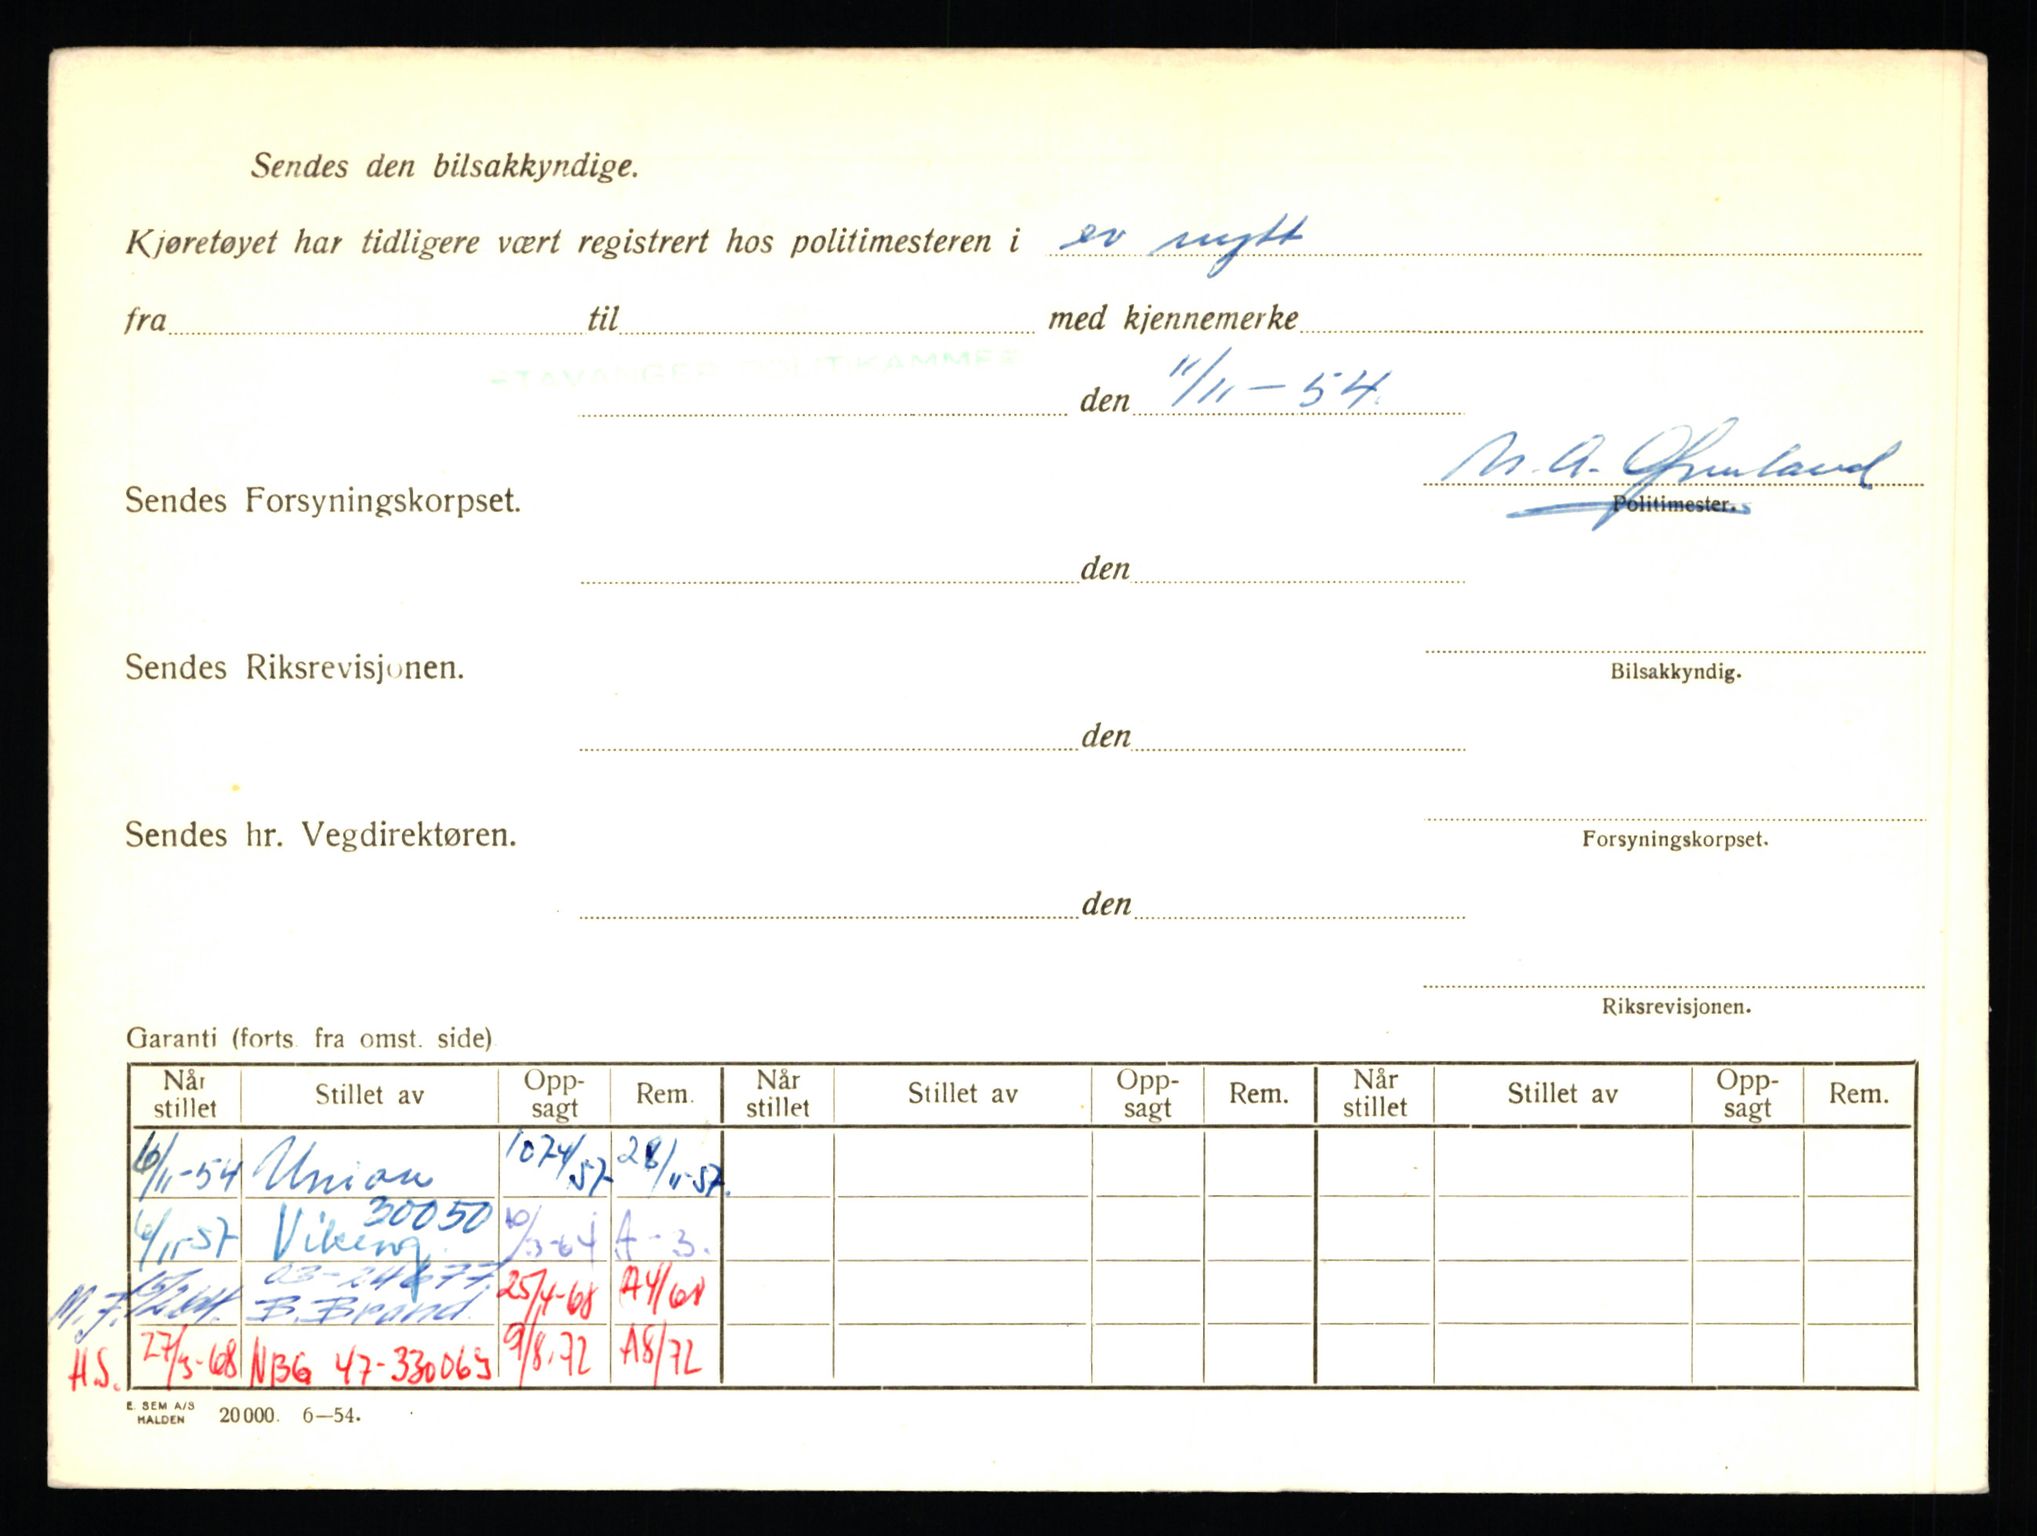 Sendes den bilsakkyndige.
Kjøretøyet har tidligere vært registrert hos politimesteren i er nytt
fra til med kjennemerke
STAVANGER POLITIKAMMER
den 11/11-54.
Sendes Forsyningskorpset.
Politimester.
den
Sendes Riksrevisjonen.
Bilsakkyndig.
den
Sendes hr. Vegdirektøren.
Forsyningskorpset.
den
Riksrevisjonen.
Garanti (forts. fra omst. side)
Når stillet Stillet av Opp-sagt Rem. Når stillet Stillet av Opp-sagt Rem. Når stillet Stillet av Opp-sagt Rem.
/11-54 Union 1074/57 28/11-57.
30050
6/11-57 Viking /3-64 A-3.
03-24677.
M.J. B. Brand. 25/4-68 A4/68
H.S. 27/3-68 NBG 47-330063 9/8.72 A8/72
E. SEM A/S
HALDEN 20000. 6—54.